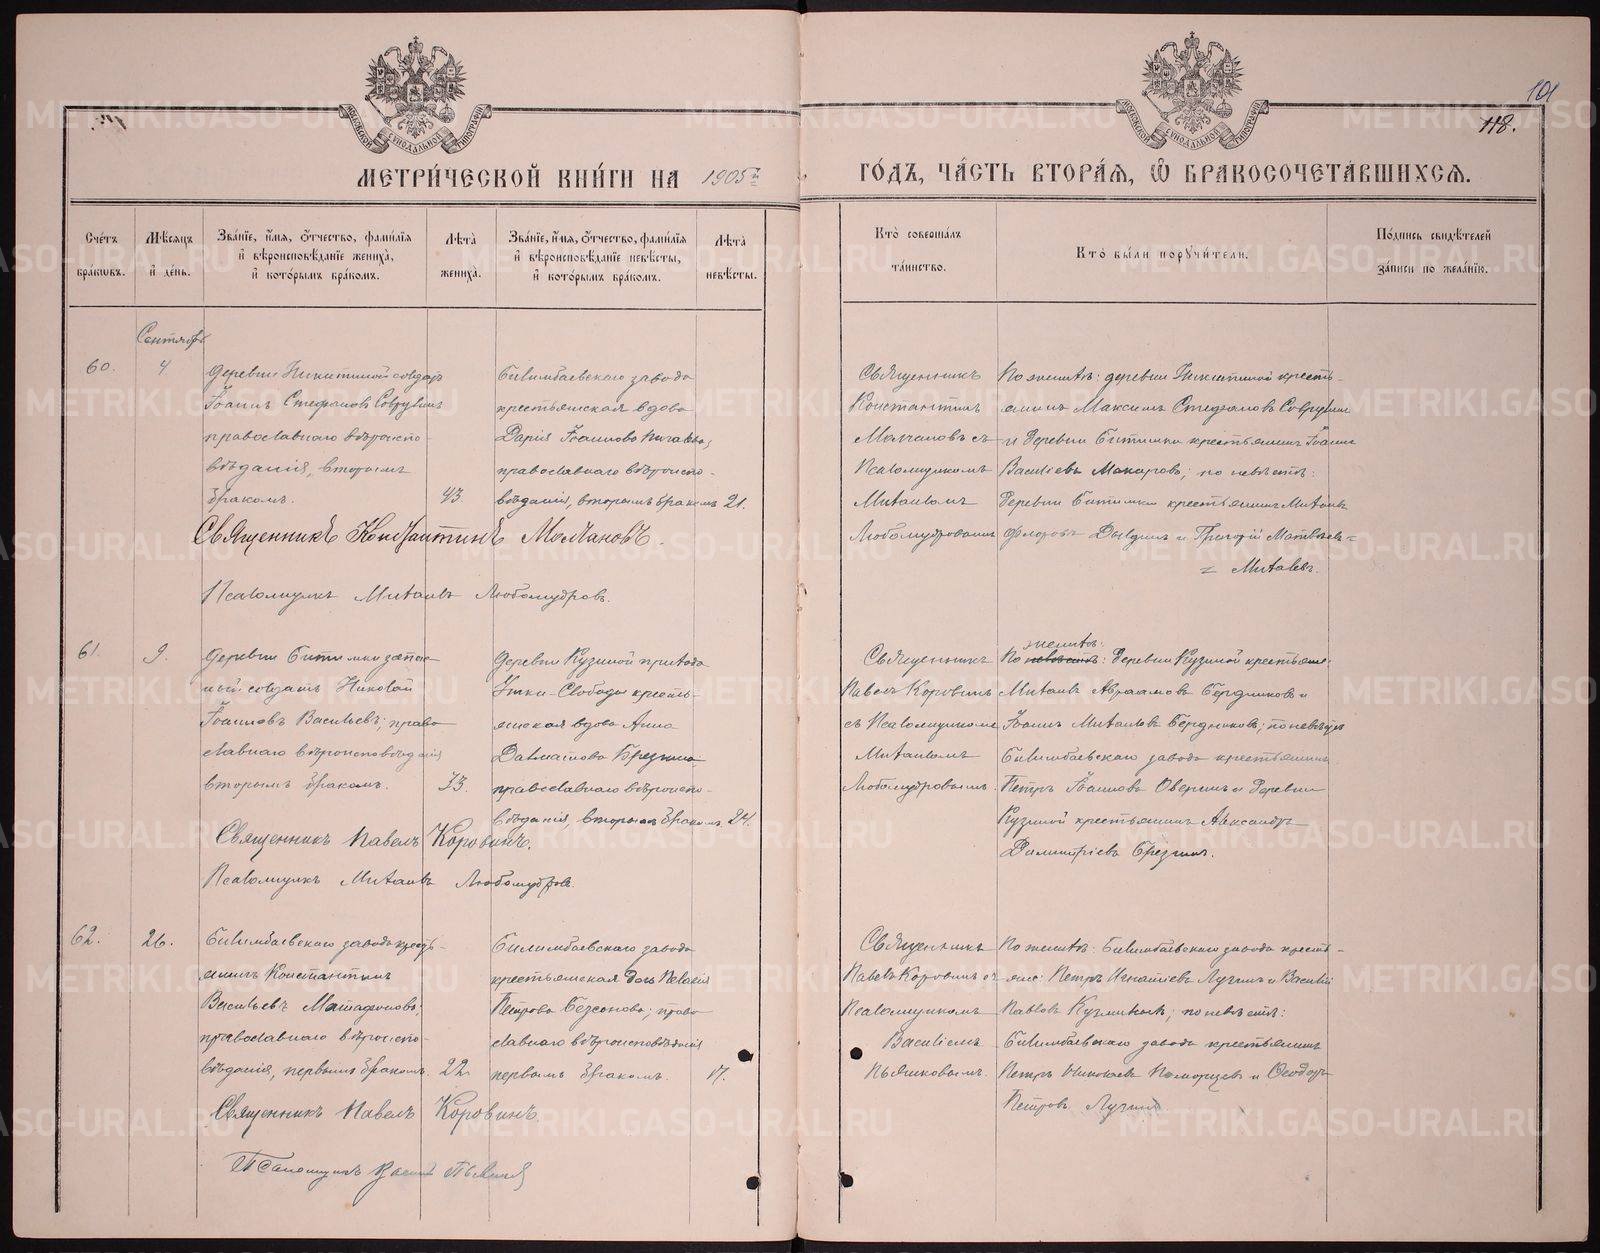 101
118.
МЕТРИ́ЧЕСКОЙ КНИ́ГИ НА 1905 ГО́ДЪ, ЧА́СТЬ ВТОРА́Я, Ѽ БРАКОСОЧЕТА́ВШИХСЯ.
Сче́тъ бра́кωвъ.
Мѣ́сяцъ и҆ де́нь.
Зва́нїе, и҆́мя, ѻ҆́тчество, фами́лїя и҆ вѣроисповѣ́данїе жениха̀, и҆ кото́рымъ бра́комъ.
Лѣ́та жениха̀.
Зва́нїе, и҆́мя, ѻ҆́тчество, фами́лїя и҆ вѣроисповѣ́данїе невѣ́сты, и҆ кото́рымъ бра́комъ.
Лѣ́та невѣ́сты.
Кто̀ соверша́лъ та́инство.
Кто̀ бы́ли порꙋчи́тели.
По́дпись свидѣ́телей за́писи по жела́нїю.
Сентябрь
60.
4
деревни Никитиной солдатъ
Іоаннъ Стефановъ
православнаго вѣроиспо-
вѣданія, вторымъ
бракомъ.
43.
Билимбаевскаго завода
крестьянская вдова
Дарія Іоаннова
православнаго вѣроиспо-
вѣданія, вторымъ бракомъ
21.
Священникъ
Константинъ
Молчановъ съ
Псаломщикомъ
Михаиломъ
Любомудровымъ
По женихѣ: деревни Никитиной кресть-
янинъ Максимъ Стефановъ
и деревни Битимки крестьянинъ Іоаннъ
Васильевъ Макаровъ; по невѣстѣ:
деревни Битимки крестьянинъ Михаилъ
Флоровъ и Григорій Матвѣевъ
Михалевъ.
Священникъ Константинъ Молчановъ.
Псаломщикъ Михаилъ Любомудровъ.
61.
9.
деревни Битимки запас-
ный солдатъ Николай
Іоанновъ Васильевъ; право
славнаго вѣроисповѣданія
вторымъ бракомъ.
33.
деревни Кузиной прихода
Утки-Слободы кресть-
янская вдова Анна
Далматова
православнаго вѣроиспо-
вѣданія, вторымъ бракомъ.
24.
Священникъ
Павелъ Коровинъ
съ Псаломщикомъ
Михаиломъ
Любомудровымъ.
женихѣ:
По невѣстѣ: деревни Кузиной крестьяне:
Михаилъ Авраамовъ Бердниковъ и
Іоаннъ Михаиловъ Бердниковъ; по невѣстѣ
Билимбаевскаго завода крестьянинъ
Петръ Іоанновъ Оверинъ и деревни
Кузиной крестьянинъ Александръ
Димитріевъ
Священникъ Павелъ Коровинъ.
Псаломщикъ Михаилъ Любомудровъ.
62.
26.
Билимбаевскаго завода кресть-
янинъ Константинъ
Васильевъ Матафоновъ;
православнаго вѣроиспо-
вѣданія, первымъ бракомъ.
22.
Билимбаевскаго завода
крестьянская дочь Пелагія
Петрова Безсонова; право
славнаго вѣроисповѣданія
первымъ бракомъ.
17.
Священникъ
Павелъ Коровинъ съ
Псаломщикомъ
Василіемъ
Пьянковымъ.
По женихѣ: Билимбаевскаго завода кресть-
яне: Петръ Игнатіевъ Лузинъ и Василій
Павловъ; по невѣстѣ:
Билимбаевскаго завода крестьянинъ
Петръ Николаевъ Поморцевъ и Ѳеодоръ
Петровъ Лузинъ
Священникъ Павелъ Коровинъ.
Псаломщикъ Василій Пьянковъ